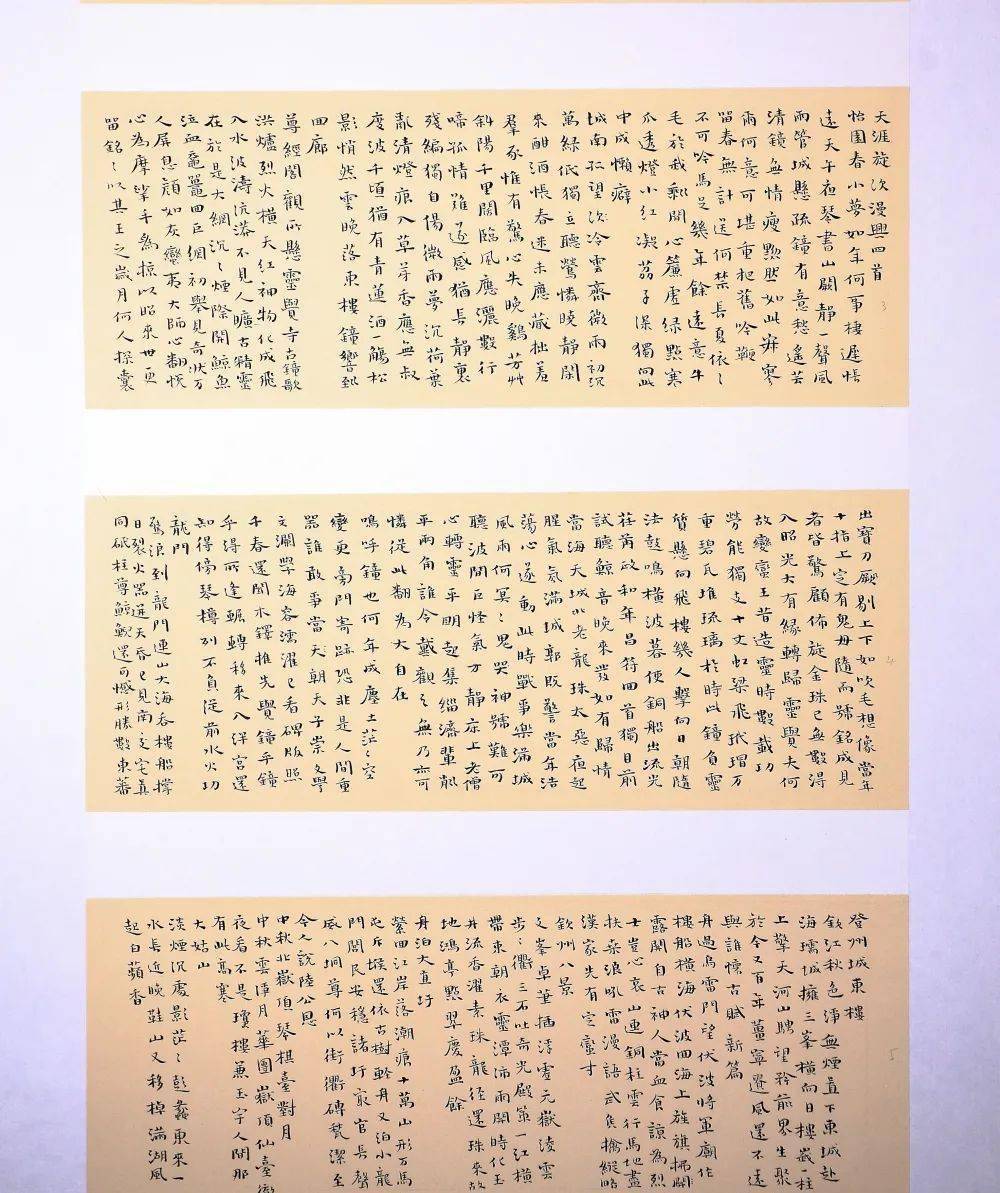 天涯旋次漫興四首
怡園春小夢如年何事棲遲悵
遠天午夜琴書山閣靜一聲風
雨管城懸疏鐘有意愁遙芸
清鏡無情瘦黯然如此寐寒
雨何意可堪重把舊吟鞭
留春無計送何禁長夏依〻
不可吟馬足幾年餘遠意牛
毛於我剩閒心簾虛綠點寒
爪透燈小紅凝荔子深獨向此
中成懶癖
城南極望浩冷雲齋微雨初沉
萬綠低獨立聽鶯憐曉靜閑
來酣酒悵春迷未應藏拙羞
羣豕惟有驚心失晚雞芳艸
斜陽千里闊臨風應灑數行
啼孤情難遂感猶長靜裏
殘編獨自傷微雨夢沉荷葉
清燈痕入草芽香應無叔
度波千頃猶有青蓮酒一觴松
影悄然雲晚落東樓鐘響到
回廊
尊經閣觀所懸靈覺寺古鐘歌
洪爐烈火橫天紅神物化成飛
入水波濤沆漭不見人曠古精靈
在於是大網沉〻煙際開鯨魚
泣血黿鼉回巨網初舉見奇狀万
人屏息顏如灰蠻夷大師心翻恢
心為摩挲手為掠以昭來世亟
留銘〻以其王之歲月何人探囊
出寶刀剮剔上下如吹毛想像當年
十指上定有鬼母隨而號銘成見
者皆驚顧佈旋金珠已無數得
入昭光大有緣轉歸靈覺大何
故變蠻王昔造靈時數載功
勞能獨支十丈虹梁飛玳瑁万
重碧瓦堆琉璃於時此鐘負靈
質懸向飛樓幾人擊向日朝隨
法鼓鳴橫波暮使銅船出流光
荏苒政和年呂符四首獨目前
試聽鯨音晚來發如有歸情
當海天城北老龍珠太惡夜起
腥氣氣滿城郭既警當年浩
蕩心遂動此時戰事樂滿城
風雨何冥〻鬼哭神號難可
聽波間巨怪氣方靜床上老僧
心轉靈平明起集緇濟輩
平兩角誰令戴觀之無乃亦可
憐從此翻為大自在
鳴呼鐘也何年成塵土茫〻空
變更旁門寄跡恐非是人間重
器誰敢爭當天朝天子崇文學
文瀾學海容濡濯已看碑版照
千春還聞木鐸推先覺鐘乎鐘
乎得所逢輾轉移來入泮宮還
知得傍琴樽列不負從前水火功
龍門
驚浪到龍門連山大海吞樓船撐
日裂火器迸天昏已見南交宅真
同砥柱尊鯨鯢還可憾形勝數東藩
登州城東樓
欽江秋色淨無煙直下東城赴
海壖城擁三峯橫向日樓巖一柱
上擎天河山騁望矜前界生聚
於今又百年薑寧邊風還不遠
與誰懷古賦新篇
舟過烏雷門望伏波將軍廟作
樓船橫海伏波四海上旌旗拂關
露閣自古神人當血食諒為烈
士豈心哀山連銅柱雲行馬地盡
扶桑浪吼雷漫語武侯擒縱略
漢家先有定蠻才
欽州八景
文峯卓筆插浮虛元嶽淩雲
步〻衢三石吐奇光殿策一江橫
帶束朝衣靈潭沛雨開時化玉
井流香濯素珠龍徑還珠來故
地鴻亭點翠慶盈餘
舟泊大直圩
縈回江岸落潮痕十萬山形万馬
屯斥堠還依古樹幹舟又泊小龍
門閭民安穩諸圩寂官長聲
威八坰尊何以街衢磚甃潔至
今人說陸公恩
中秋北嶽頂琴棋臺對月
中秋雲淨月華圓嶽頂仙臺徹
夜看不是瓊樓兼玉宇人間那
有此高寒
大姑山
淡煙沉處影茫〻彭蠡東來一
水長近映鞋山又移掉滿湖風
起白蘋香